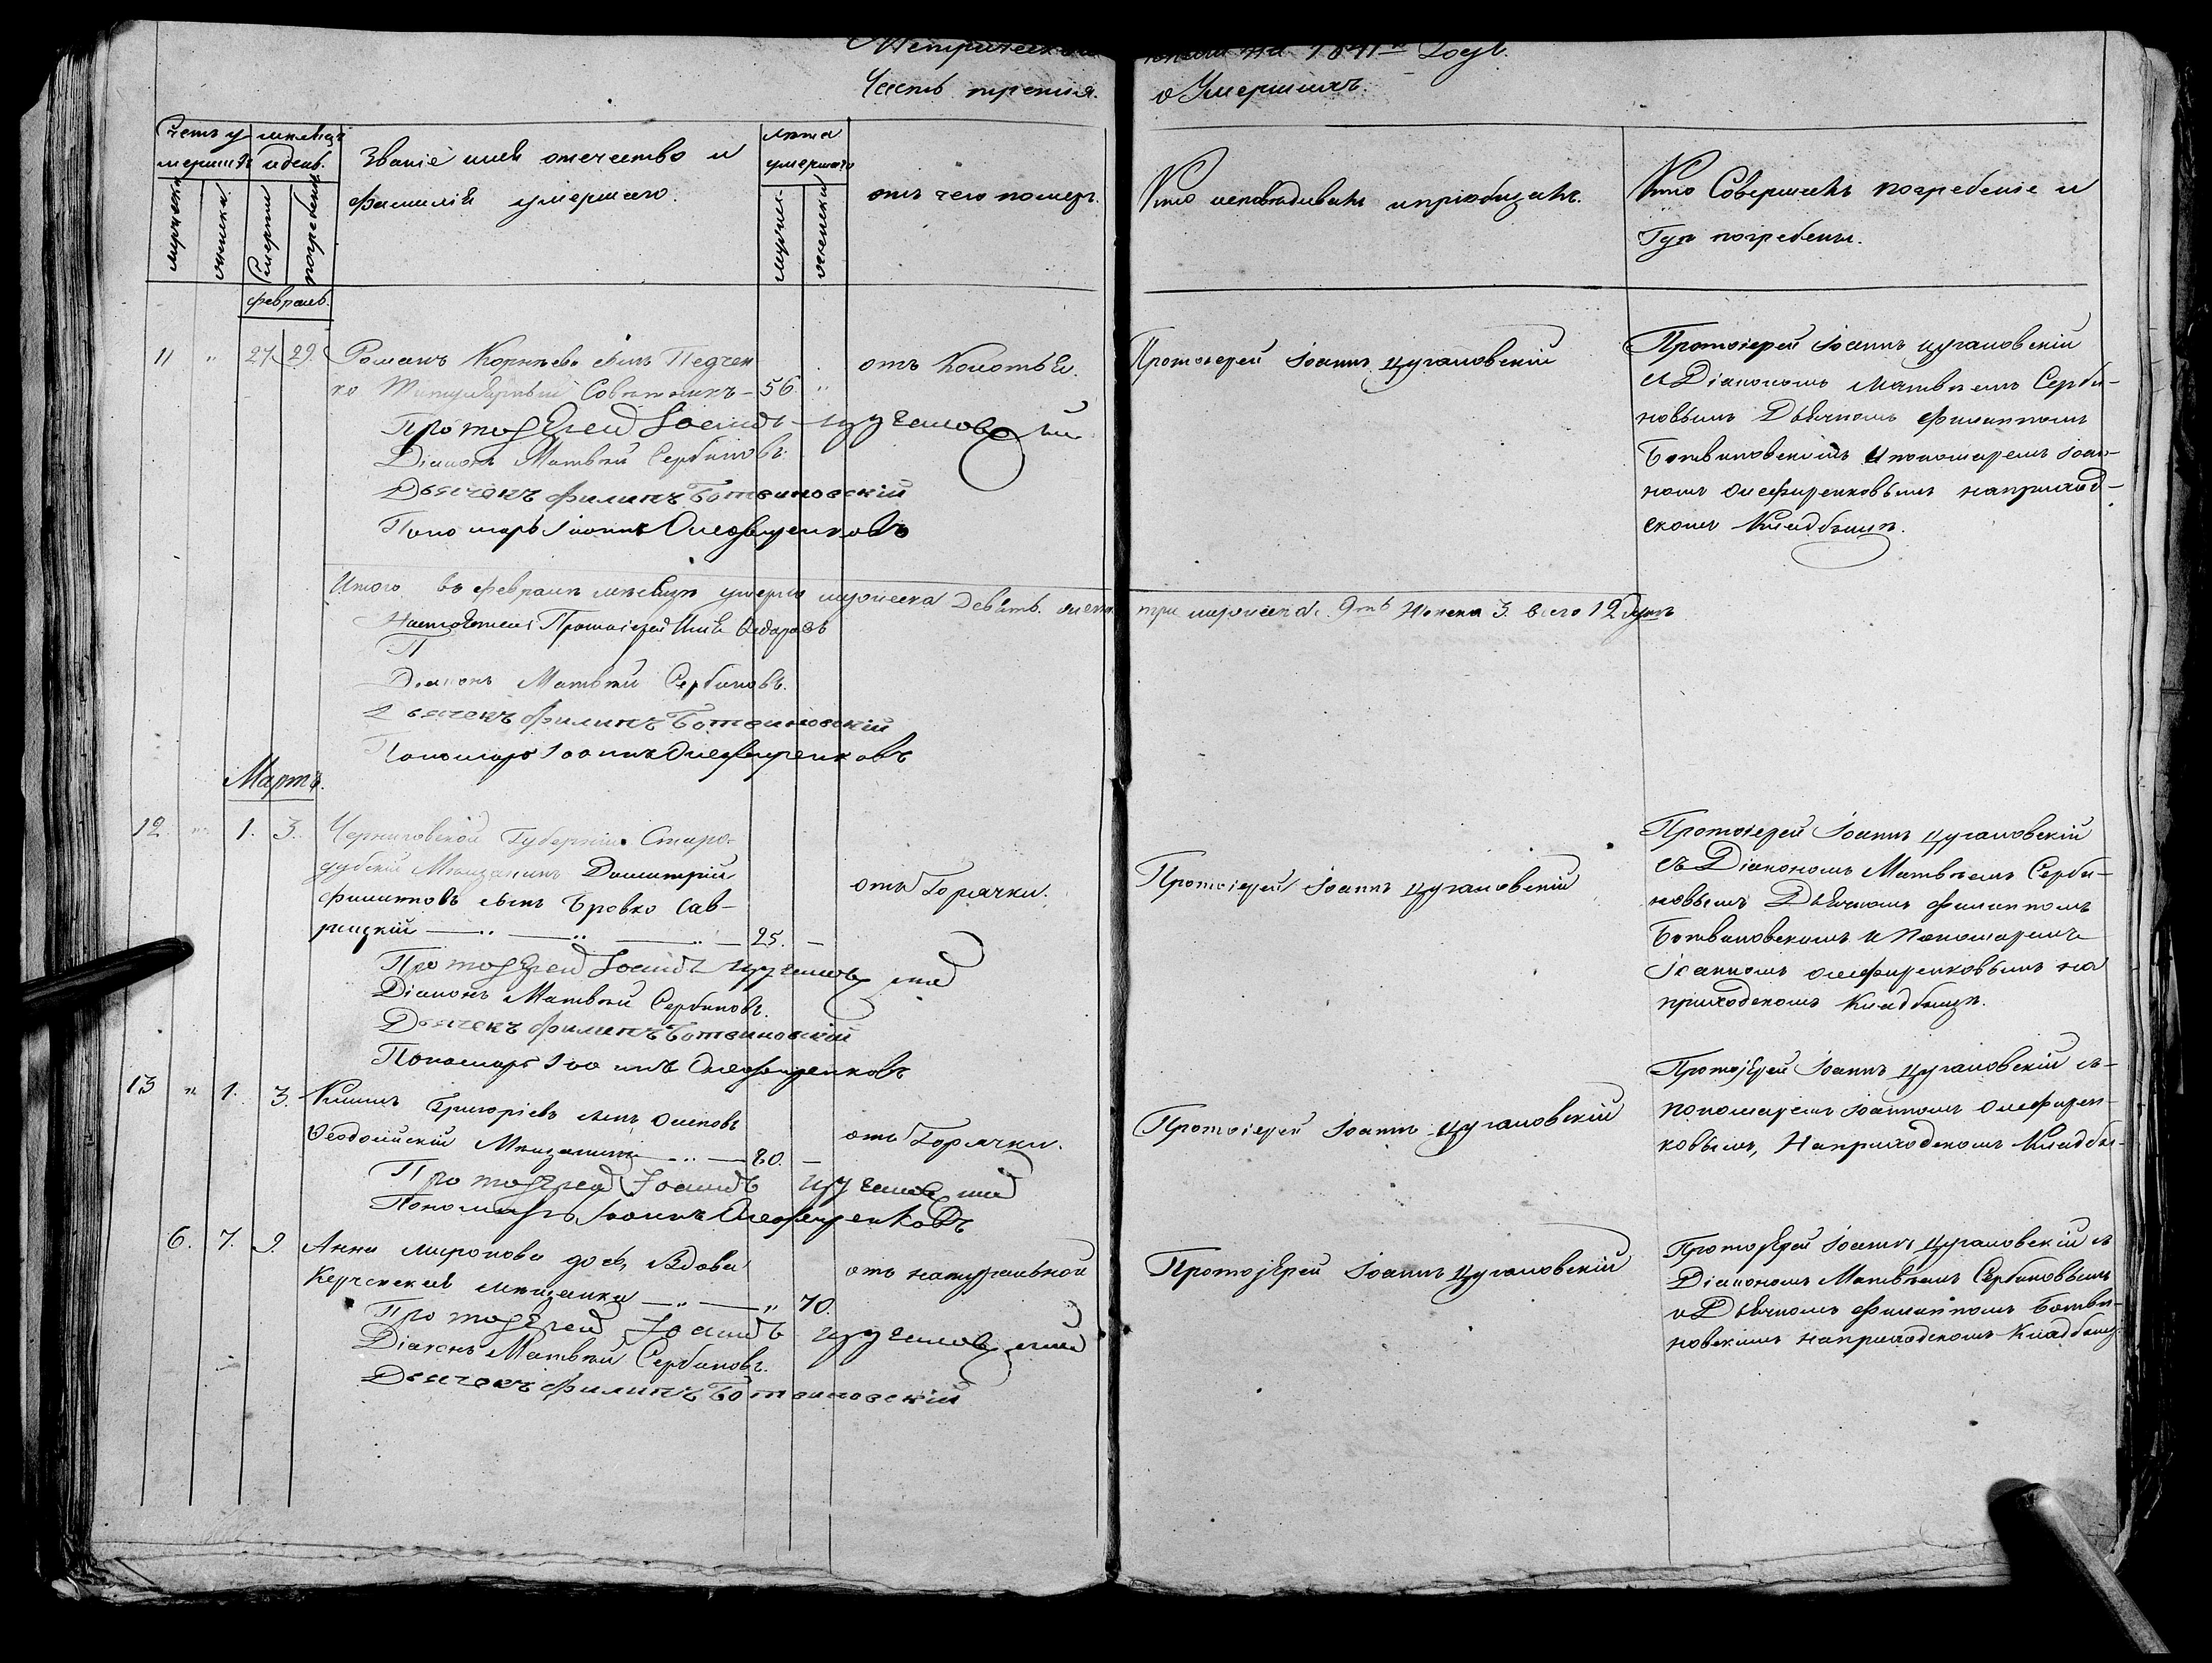 Метрической книги на 1841й Годъ.
Часть третия. о Умершихъ.
Счетъ умершихъ
мужеска
женска
месяцъ и день.
Смерти
погребения
Званіе имя отечество и
фамилія умершаго.
лета умершаго
мужеск.
женска
отъ чего померъ.
Кто исповѣдывалъ и пріобщалъ.
Кто Совершалъ погребеніе и
Гдѣ погребены.
февраль.
11 " 27. 29. Романъ Корнѣевъ сынъ Педчен
ко Титулярный Совѣтникъ - 56 "
отъ Колотья.
Протоіерей Іоаннъ Цугановскій
Протоіерей Іоаннъ Цугановскій
съ Діакономъ Матвѣемъ Серби-
новымъ Дьячкомъ Филиппомъ
Ботвиновскимъ и пономаремъ Іоан-
номъ Олефиренковымъ на приход-
скомъ Кладбищѣ.
Протоіерей Іоаннъ Цугановскій
Діаконъ Матвѣй Сербиновъ
Дьячекъ Филипъ Ботвиновскій
Пономарь Іоаннъ Олеференковъ
Итого въ февралѣ месяцѣ умерло мужеска Девять. женска три мужеска. 9ть Женска 3. всего 12 душъ
Протоіерей
Діаконъ Матвѣй Сербиновъ.
Дьячекъ Филипъ Ботвиновскій
Пономарь Іоаннъ Олеференковъ
Мартъ.
12. " 1. 3. Черниговской Губерніи Старо-
дубскій Мѣщанинъ Димитрій
Филиповъ сынъ Бровко Сав-
рицкій 25. -
отъ Горячки.
Протоіерей Іоаннъ Цугановскій
Протоіерей Іоаннъ Цугановскій
съ Діакономъ Матвѣемъ Серби-
новымъ Дьячкомъ Филиппомъ
Ботвиновскимъ и Пономаремъ
Іоанномъ Олефиренковымъ на
приходскомъ Кладбищѣ.
Протоіерей Іоаннъ Цугановскій
Діаконъ Матвѣй Сербиновъ.
Дьячекъ Филипъ Ботвиновскій
Пономарь Іоаннъ Олеференковъ
13 " 1. 3. Климъ Григоріевъ сынъ Осиповъ
Ѳеодосійскій Мѣщанинъ 80. -
отъ Горячки.
Протоіерей Іоаннъ Цугановскій
Протоіерей Іоаннъ Цугановскій съ
пономаремъ Іоанномъ Олефирен-
ковымъ, На приходскомъ Кладби-
Протоіерей Іоаннъ Цугановскій
Пономарь Іоаннъ Олеференковъ
6. 7. 9. Анна Миронова дочь, Вдова
Керченская мѣщанка " 70.
отъ натуральной
Протоіерей Іоаннъ Цугановскій
Протоіерей Іоаннъ Цугановскій съ
Діакономъ Матвѣемъ Сербиновымъ
и Дьячкомъ Филиппомъ Ботви-
новскимъ на приходскомъ Кладбищ.
Протоіерей Іоаннъ Цугановскій
Діаконъ Матвѣй Сербиновъ.
Дьячекъ Филипъ Ботвиновскій